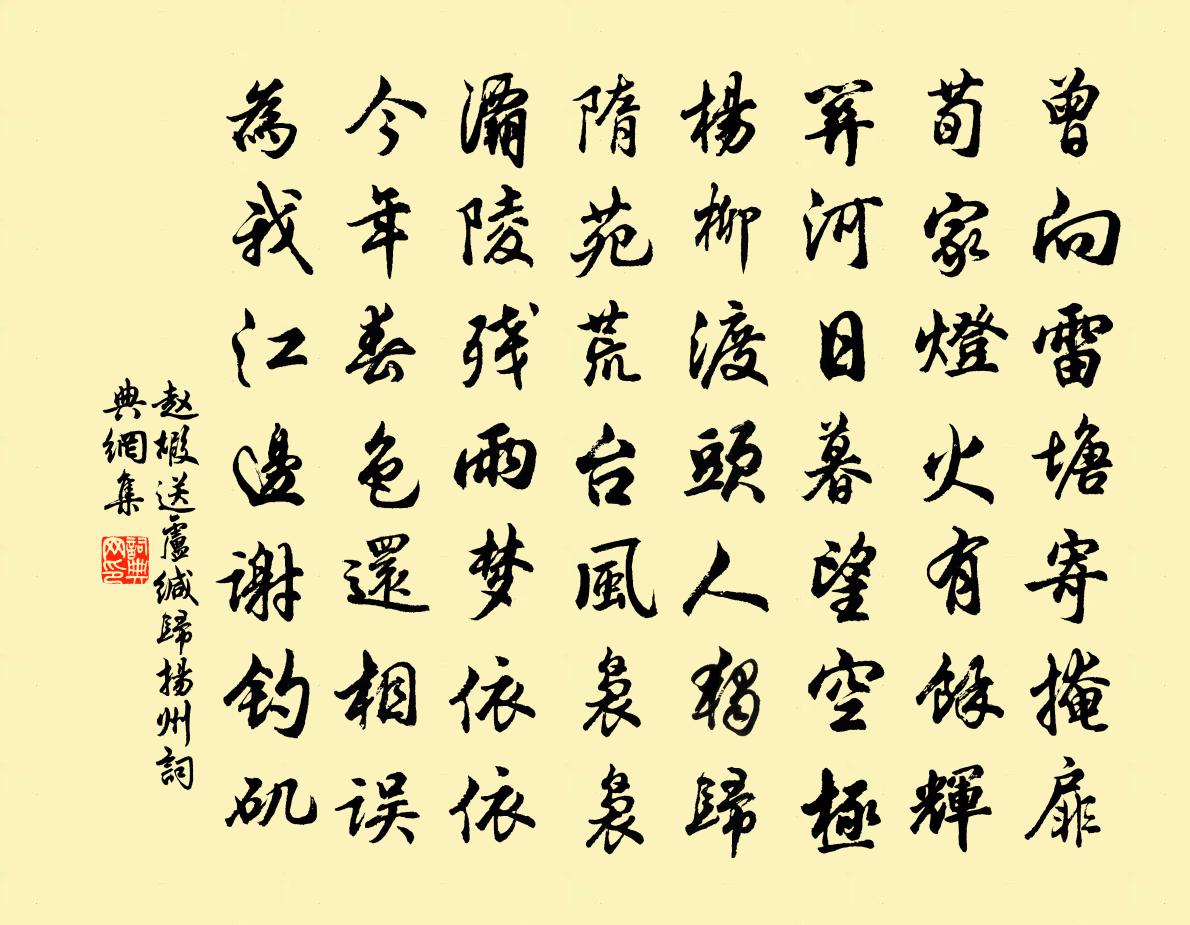 曾向雷塘寄掩扉
荀家燈火有餘輝
關河日暮望空極
楊柳渡頭人獨歸
隋苑荒台風裊裊
灞陵残雨梦依依
今年春色還相误
為我江邊謝钓矶
赵嘏送盧缄歸揚州詞
典網集
詞典
网印